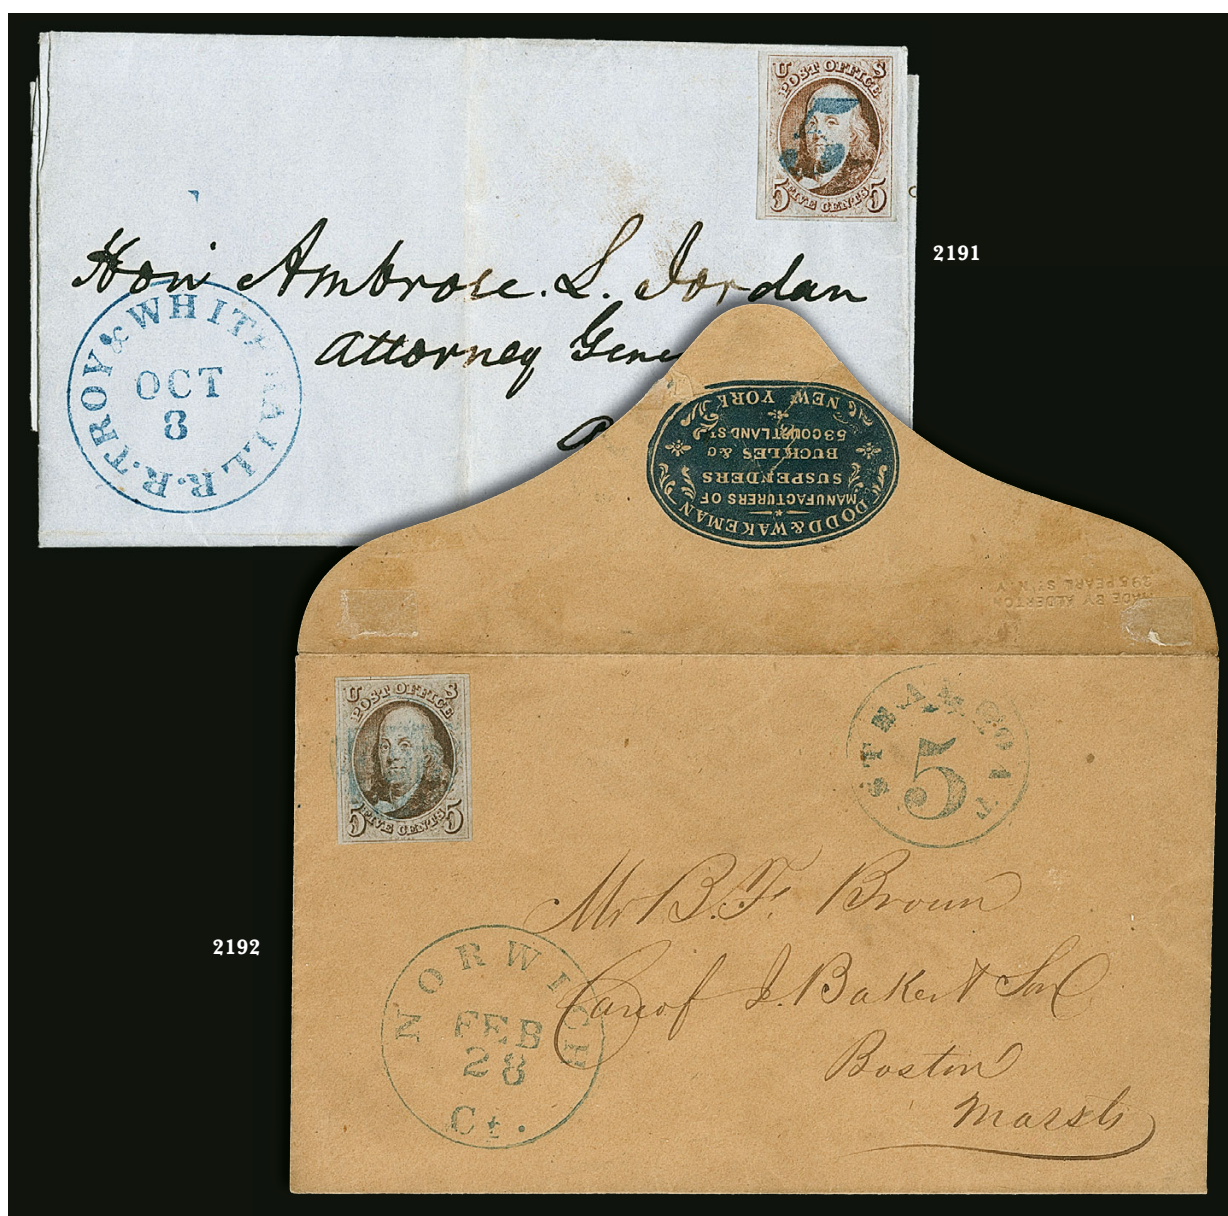 U S
POST OFFICE
5 FIVE CENTS 5
5
2191
Hon Ambrose. L. Jordan
Attorney Gene
TROY & WHITEHALL R.R.
OCT
8
DODD & WAKEMAN
MANUFACTURERS OF
SUSPENDERS
BUCKLES & CO
53 COURTLAND ST
NEW YORK
MADE BY ALDERTON
295 PEARL ST N.Y
U S
POST OFFICE
5 FIVE CENTS 5
STEAMBOAT
5
2192
Mr B. F. Brown
Care of J. Baker & Son
Boston
Massts
NORWICH
FEB
28
Ct.